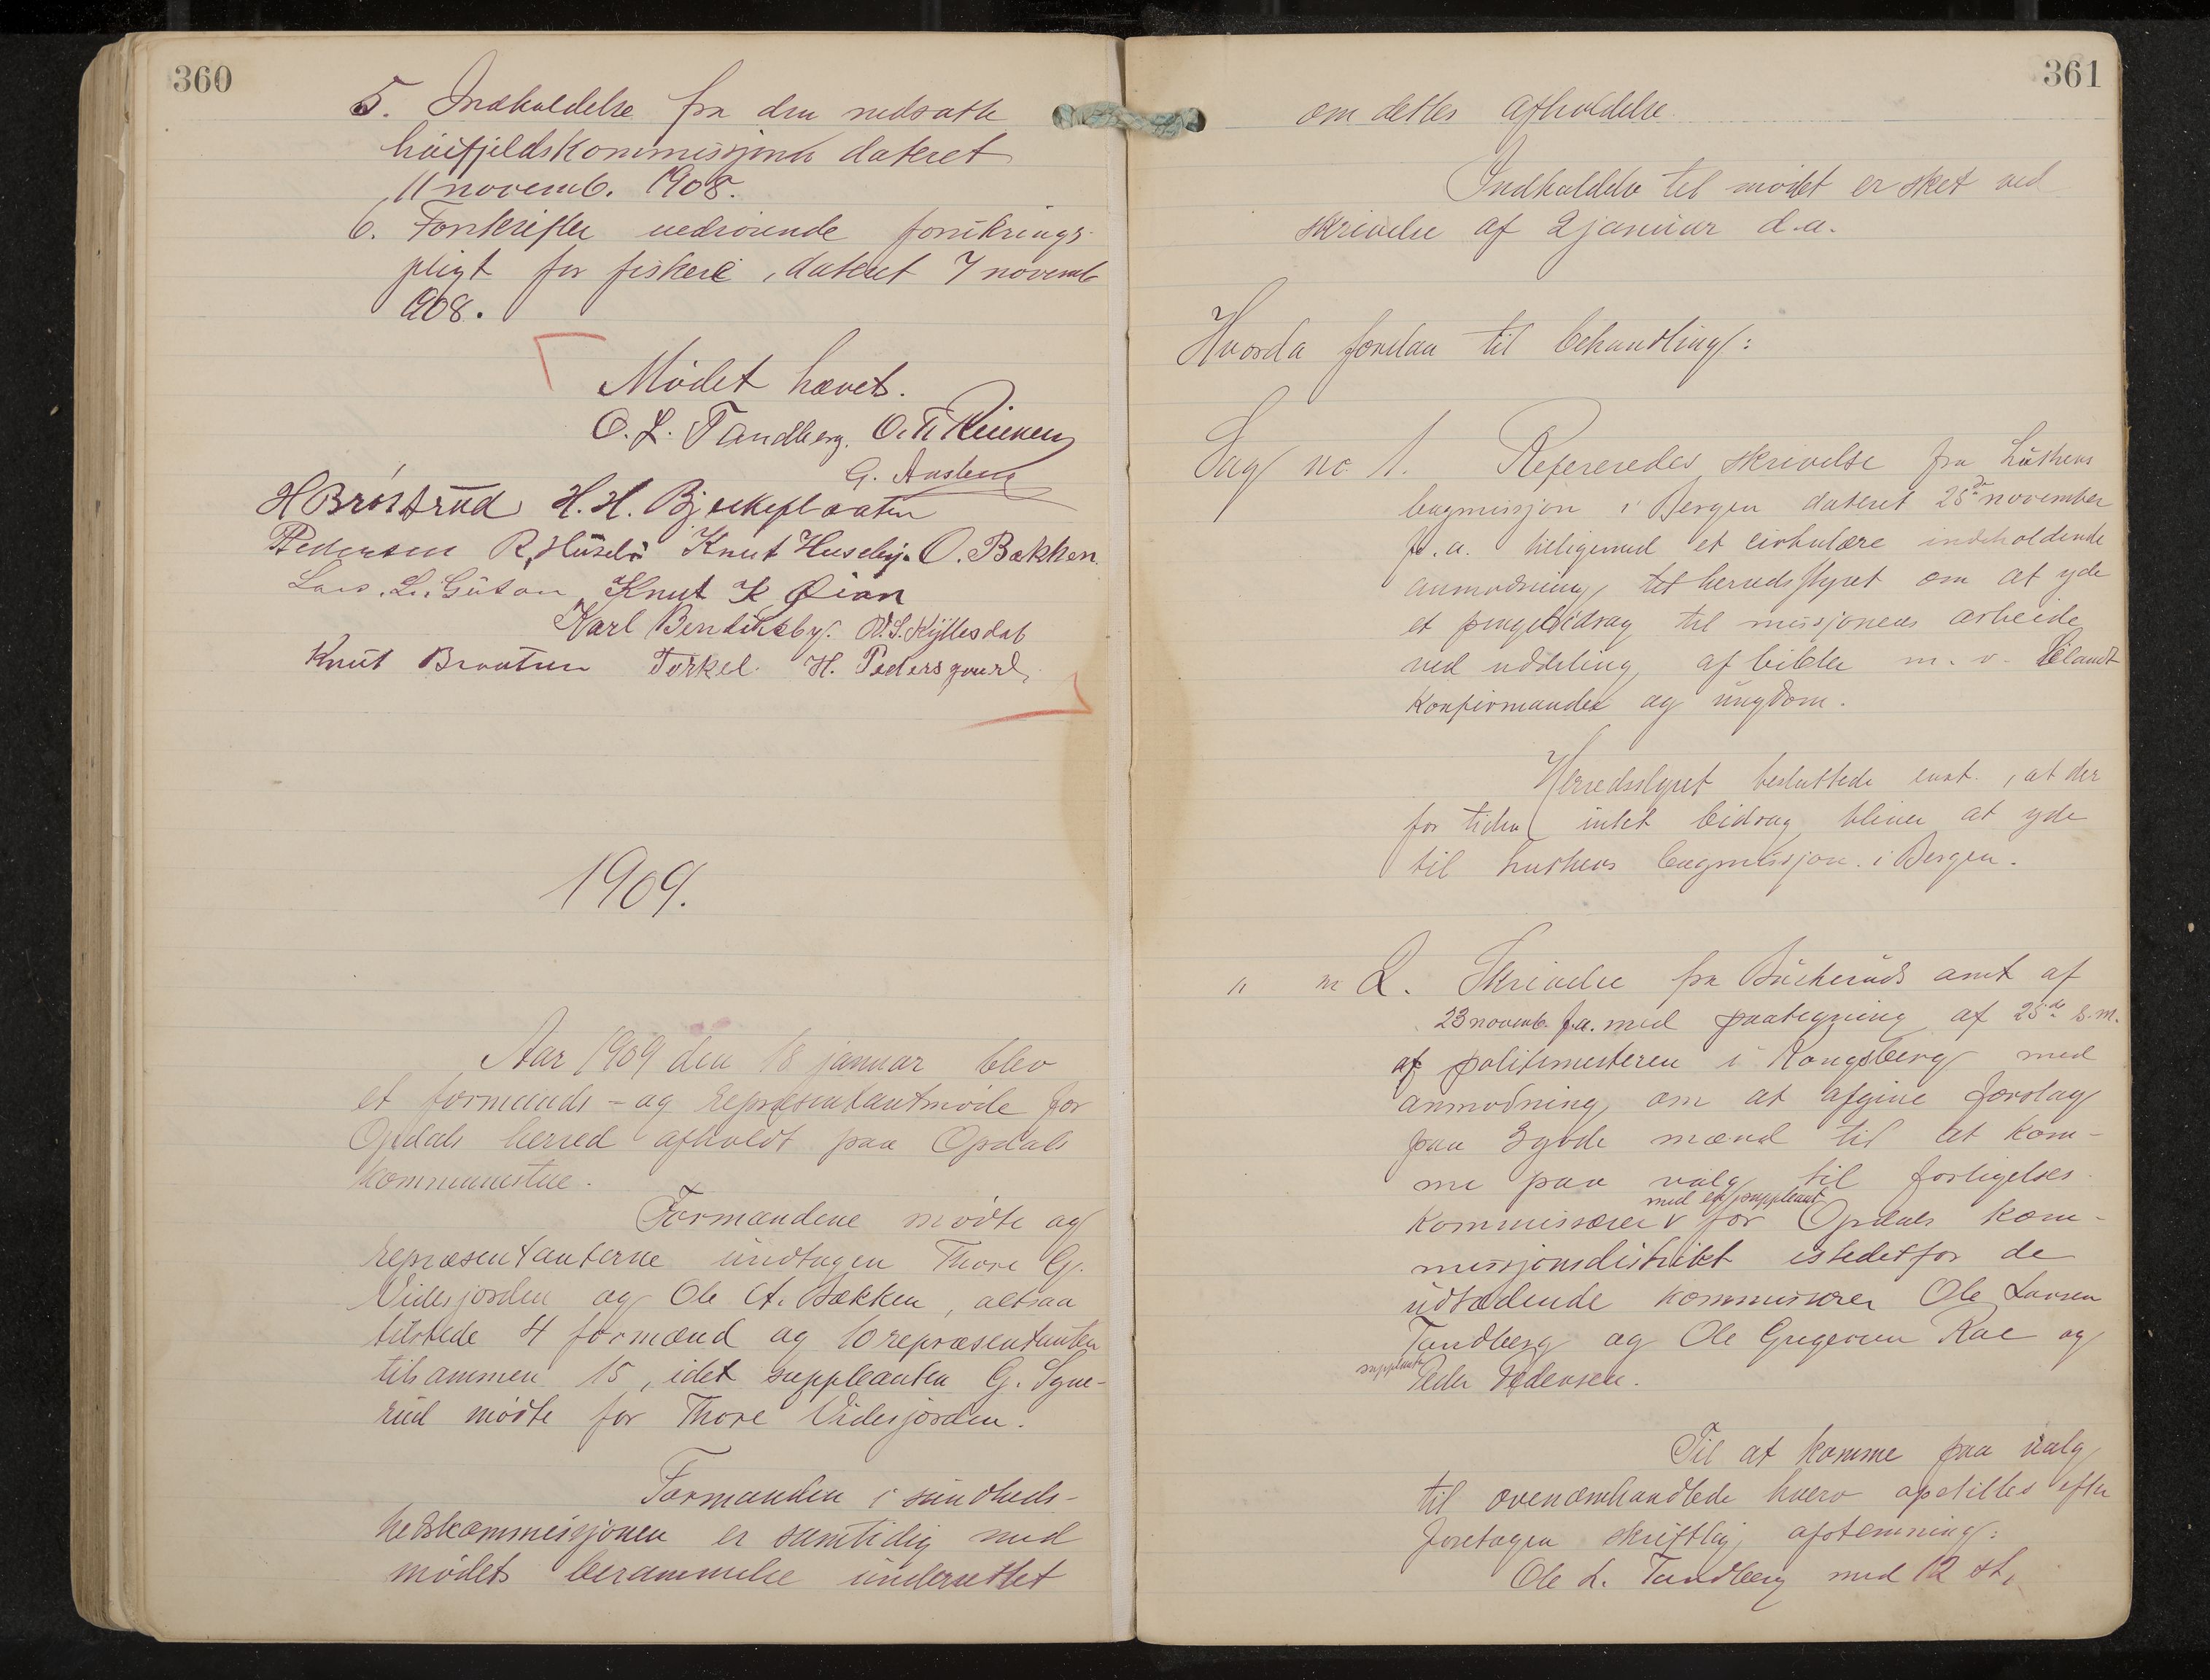 360
5. Indkaldelse fra den nedsatte
høifjeldskommissjon dateret
11 novemb. 1908.
6. Forskrifter vedrørende forsikrings-
pligt for fiskere, dateret 7 novemb
1908.
Mødet hævet.
O. L. Tandberg.
G.
H Brøstrud H. H. Bjerkeplaaten
Pedersen R. Huseby Knut Huseby. O. Bakken.
Lars. L. Knut K Øian
Karl Bendiksby.
Knut Braaten Torkel. H. Pedersgaard,
1909.
Aar 1909 den 18 januar blev
et formands- og repræsentantmøde for
Opdals herred afholdt paa Opdals
kommunestue.
Formændene mødte og
repræsentanterne undtagen Thore G.
Videsjorden og Ole A. Bakken, altsaa
tilstede 4 formænd og 10 repræsentanter
tilsammen 15, idet suppleanten G. Syne-
rud mødte for Thore Videsjorden.
Formanden i sundheds-
hedskommissjonen er samtidig med
mødets berammelse underrettet
361
om dettes afholdelse.
Indkaldelse til mødet er sket ved
skrivelse af 2 januar d.a.
Hvorda forelaa til behandling:
Sag no. 1. Refereredes skrivelse fra Luthers
bugmissjon i Bergen dateret 25de november
f.a. tilligemed et cirkulære indeholdende
anmodning til herredsstyret om at yde
et pengebidrag til missjonens arbeide
ved uddeling af bibler m. v. blandt
konfirmander og ungdom.
Herredsstyret besluttede enst., at der
for tiden intet bidrag bliver at yde
til Luthers bugmissjon i Bergen.
" " 2. Skrivelse fra Buskeruds amt af
23 novemb. f.a. med paategning af 25de s.m.
af politimesteren i Kongsberg med
anmodning om at afgive forslag
paa 3 gode mænd til at kom-
me paa valg til forligelses-
med en suppleant
kommissærer v for Opdals kom-
missjonsdistrikt istedetfor de
udtrædende kommissærer Ole Larsen
Tandberg og Ole Gregersen Rae og
suppleant Peder Pedersen.
Til at komme paa valg
til ovenomhandlede hverv opstilles efter
foretagen skriftlig afstemning:
Ole L. Tandberg med 12 st,